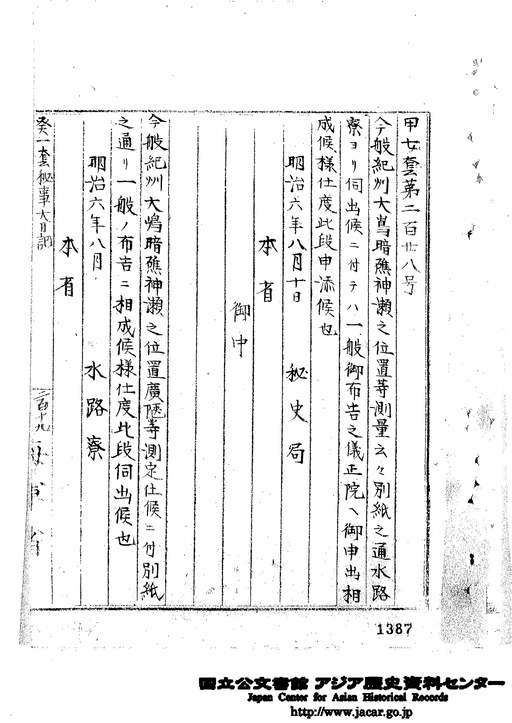 甲七套第二百廿八号
今般紀州大嶌暗礁神瀬之位置等測量云々別紙之通水路
寮ヨリ伺出候ニ付テハ一般御布告之儀正院ヘ御申出相
成候様仕度此段申添候也
明治六年八月十日 秘史局
本省
御中
今般紀州大嶋暗礁神瀬之位置廣陿等測定仕候ニ付別紙
之通リ一般ノ布告ニ相成候様仕度此段伺出候也
明治六年八月 水路寮
本省
癸一套秘事大日記
二百十九 海軍省
1387
国立公文書館 アジア歴史資料センター
Japan Center for Asian Historical Records
http://www.jacar.go.jp